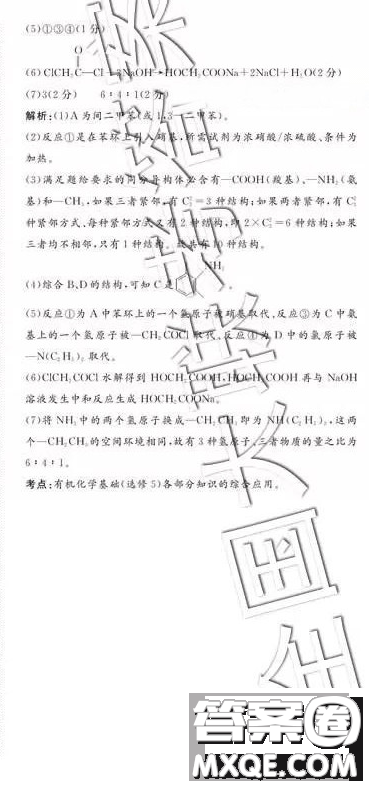 (5)①③④(1分)
O
(6)ClCH₂C—Cl+3NaOH→HOCH₂COONa+2NaCl+H₂O(2分)
(7)3(2分) 6∶4∶1(2分)
解析:(1)A为间二甲苯(或1,3—二甲苯)。
(2)反应①是在苯环上引入硝基,所需试剂为浓硝酸/浓硫酸、条件为
加热。
(3)满足题给要求的同分异构体必含有—COOH(羧基)、—NH₂(氨
基)和—CH₃,如果三者紧邻,有C₃¹=3种结构;如果两者紧邻,有C
种紧邻方式、每种紧邻方式又有2种结构,即2×C =6种结构;如果
三者均不相邻,只有1种结构。故共有10种结构。
NH
(4)综合B、D的结构,可知C是
(5)反应①为A中苯环上的一个氢原子被硝基取代、反应③为C中氨
基上的一个氢原子被—CH₂COCl取代、反应④为D中的氯原子被
—N(C₂H₅)₂取代。
(6)ClCH₂COCl水解得到HOCH₂COOH,HOCH₂COOH再与NaOH
溶液发生中和反应生成HOCH₂COONa。
(7)将NH₃中的两个氢原子换成—CH₂CH₃即为NH(C₂H₅)₂,这两
个—CH₂CH₃的空间环境相同,故有3种氢原子,三者物质的量之比为
6∶4∶1。
考点:有机化学基础(选修5)各部分知识的综合应用。
答案圈
MXQE.COM